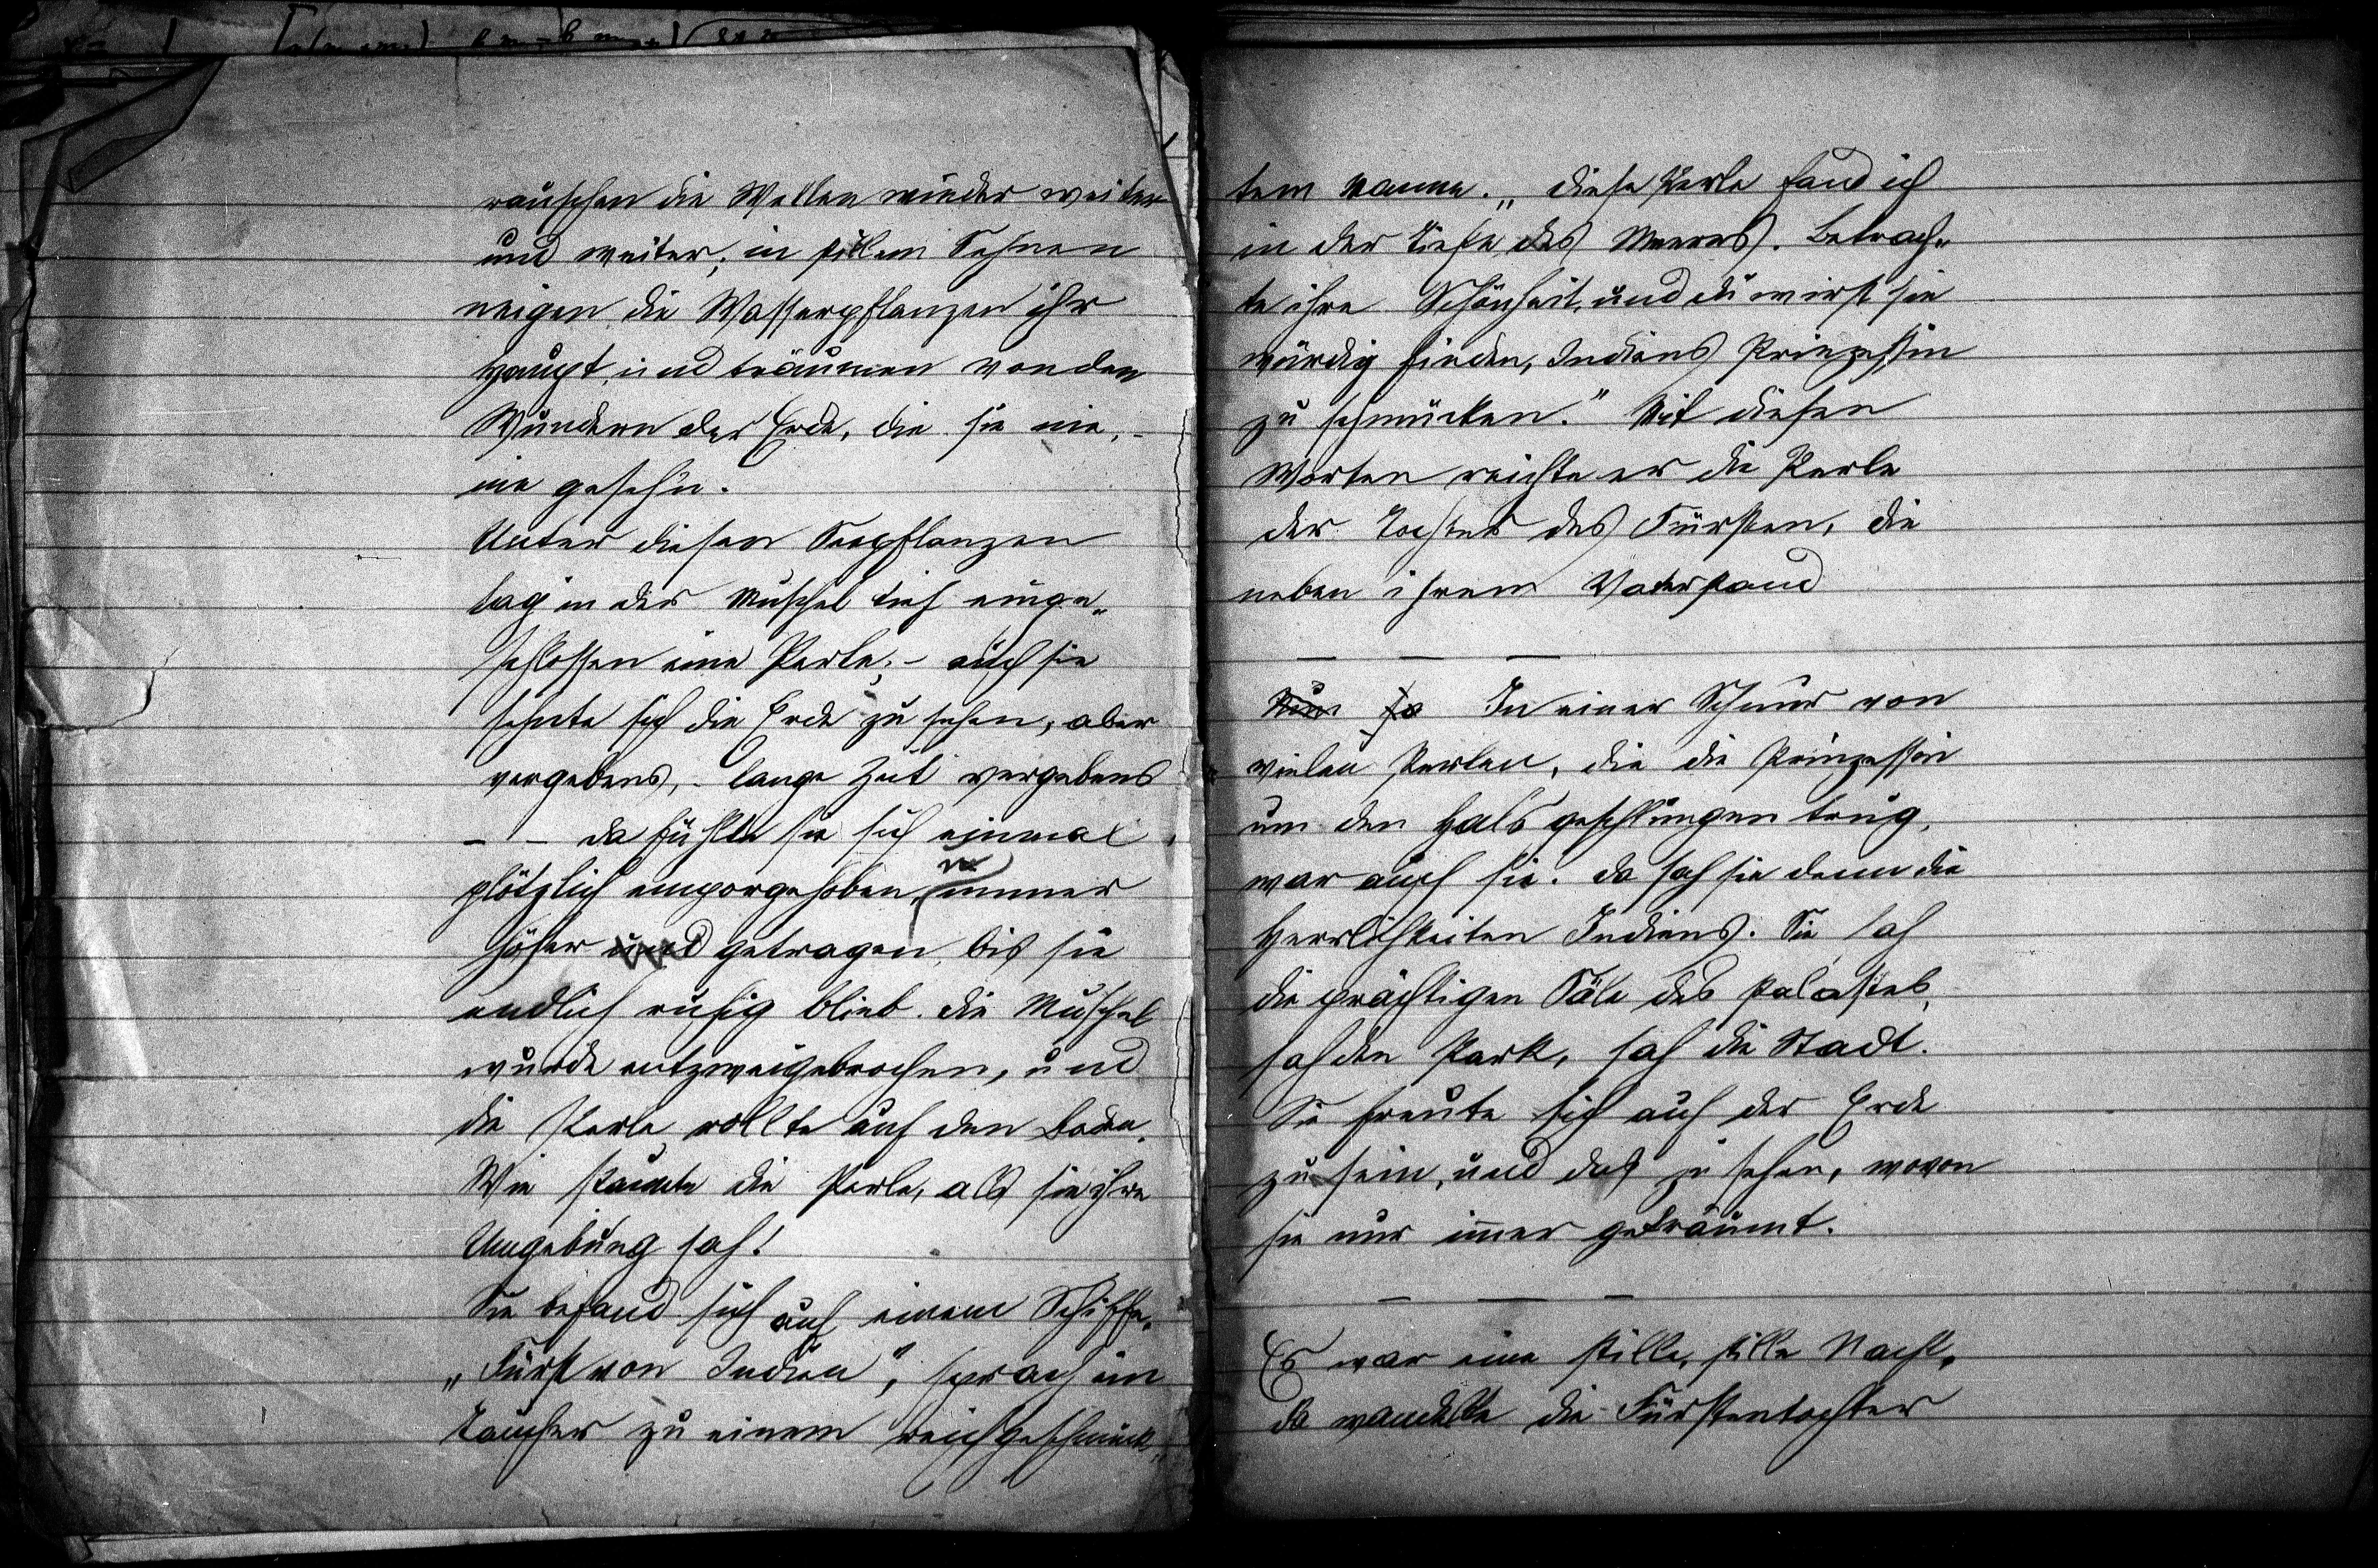 rauschen die Wellen wieder weiter
und weiter; in stillem Sehnen
neigen die Wasserpflanzen ihr
Haupt, und träumen von den
Wundern der Erde, die sie nie, -
nie geseh'n.
Unter diesen Seepflanzen
lag in der Muschel tief einge-
schlossen eine Perle; - auch sie
sehnte sich die Erde zu sehen, aber
vergebens, - lange Zeit vergebens
- - da fühlte sie sich einmal
plötzlich emporgehoben, immer
höher und getragen, bis sie
endlich ruhig blieb. die Muschel
wurde entzweigebrochen, und
die Perle rollte auf den Boden.
Wie staunte die Perle, als sie ihre
Umgebung sah!
Sie befand sich auf einem Schiffe.
„Fürst von Indien", sprach ein
Taucher zu einem reichgeschmück-
tem Manne. „diese Perle fand ich
in der Tiefe des Meeres. Betrach-
te ihre Schönheit, und du wirst sie
würdig finden, Indiens Prinzessin
zu schmücken." Mit diesen
Worten reichte er die Perle
der Tochter des Fürsten, die
neben ihrem Vater stand
— — —
Nun so In einer Schnur von
vielen Perlen, die die Prinzessin
um den Hals geschlungen trug,
war auch sie. da sah sie denn die
Herrlichkeiten Indiens. Sie sah
die prächtigen Säle des Palastes,
sah den Park, sah die Stadt.
Sie freute sich auf der Erde
zu sein, und das zu sehen, wovon
sie nur immer geträumt.
— — —
Es war eine stille, stille Nacht,
da wandelte die Fürstentochter